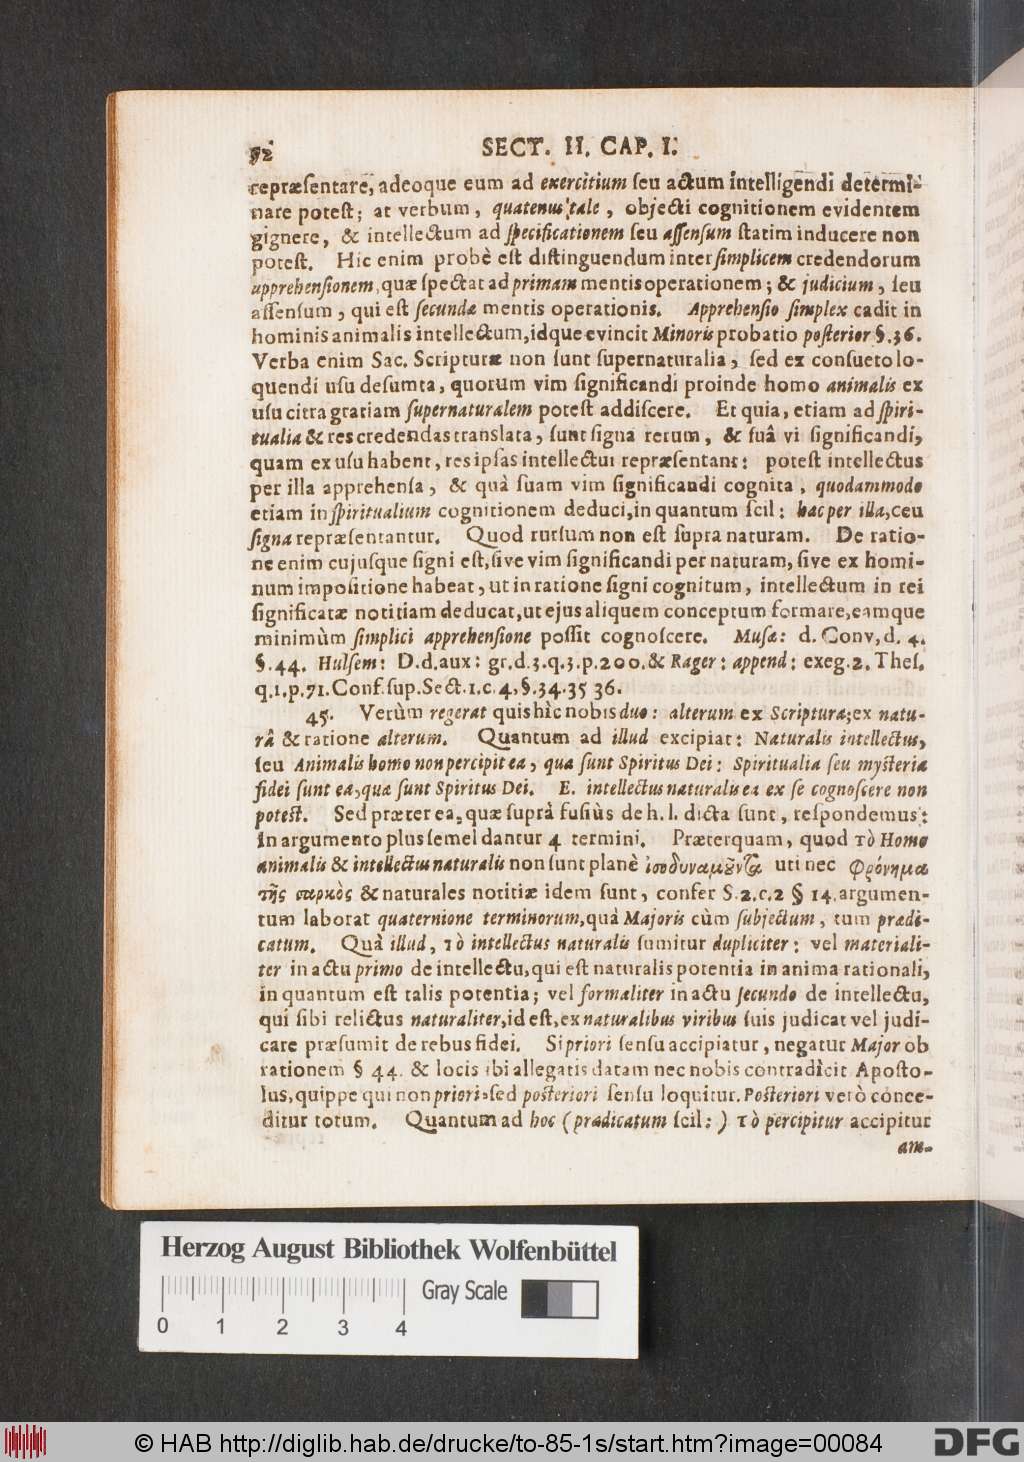 52 SECT. II. CAP. I.
repræſentare, adeoque eum ad exercitium ſeu actum intelligendi determi-
nare poteſt; at verbum, quatenus tale, objecti cognitionem evidentem
gignere, & intellectum ad ſpecificationem ſeu aſſenſum ſtatim inducere non
poteſt. Hic enim probè eſt diſtinguendum inter ſimplicem credendorum
apprehenſionem, quæ ſpectat ad primam mentis operationem; & judicium, ſeu
aſſenſum, qui eſt ſecundæ mentis operationis. Apprehenſio ſimplex cadit in
hominis animalis intellectum, idque evincit Minoris probatio poſterior §. 36.
Verba enim Sac. Scripturæ non ſunt ſupernaturalia, ſed ex conſueto lo-
quendi uſu deſumta, quorum vim ſignificandi proinde homo animalis ex
uſu citra gratiam ſupernaturalem poteſt addiſcere. Et quia, etiam ad ſpiri-
tualia & res credendas translata, ſunt ſigna rerum, & ſuâ vi ſignificandi,
quam ex uſu habent, res ipſas intellectui repræſentant: poteſt intellectus
per illa apprehenſa, & quâ ſuam vim ſignificandi cognita, quodammodo
etiam in ſpiritualium cognitionem deduci, in quantum ſcil: hac per illa, ceu
ſigna repræſentantur. Quod rurſum non eſt ſupra naturam. De ratio-
ne enim cujuſque ſigni eſt, ſive vim ſignificandi per naturam, ſive ex homi-
num impoſitione habeat, ut in ratione ſigni cognitum, intellectum in rei
ſignificatæ notitiam deducat, ut ejus aliquem conceptum formare, eamque
minimùm ſimplici apprehenſione poſſit cognoſcere. Muſæ: d. Conv, d. 4.
§. 44. Hulſem: D. d. aux: gr. d. 3. q. 3. p. 200. & Rager: append: exeg. 2. Theſ.
q. 1. p. 71. Conf. ſup. Sect. 1. c. 4, §. 34. 35 36.
45. Verùm regerat quis hìc nobis duo: alterum ex Scriptura; ex natu-
râ & ratione alterum. Quantum ad illud excipiat: Naturalis intellectus,
ſeu Animalis homo non percipit ea, quæ ſunt Spiritus Dei: Spiritualia ſeu myſteria
fidei ſunt ea, quæ ſunt Spiritus Dei. E. intellectus naturalis ea ex ſe cognoſcere non
poteſt. Sed præter ea, quæ ſuprà fuſiùs de h. l. dicta ſunt, reſpondemus:
In argumento plus ſemel dantur 4 termini. Præterquam, quod τὸ Homo
animalis & intellectus naturalis non ſunt planè ἰσοδυναμοῦντα uti nec φρόνημα
τῆς σαρκὸς & naturales notitiæ idem ſunt, confer S. 2. c. 2 § 14. argumen-
tum laborat quaternione terminorum, quà Majoris cùm ſubjectum, tum prædi-
catum. Quà illud, τὸ intellectus naturalis ſumitur dupliciter: vel materiali-
ter in actu primo de intellectu, qui eſt naturalis potentia in anima rationali,
in quantum eſt talis potentia; vel formaliter in actu ſecundo de intellectu,
qui ſibi relictus naturaliter, id eſt, ex naturalibus viribus ſuis judicat vel judi-
care præſumit de rebus fidei. Si priori ſenſu accipiatur, negatur Major ob
rationem § 44. & locis ibi allegatis datam nec nobis contradìcit Apoſto-
lus, quippe qui non priori, ſed poſteriori ſenſu loquitur. Poſteriori verò conce-
ditur totum. Quantum ad hoc (prædicatum ſcil:) τὸ percipitur accipitur
am-
Herzog August Bibliothek Wolfenbüttel
Gray Scale
0 1 2 3 4
© HAB http://diglib.hab.de/drucke/to-85-1s/start.htm?image=00084
DFG